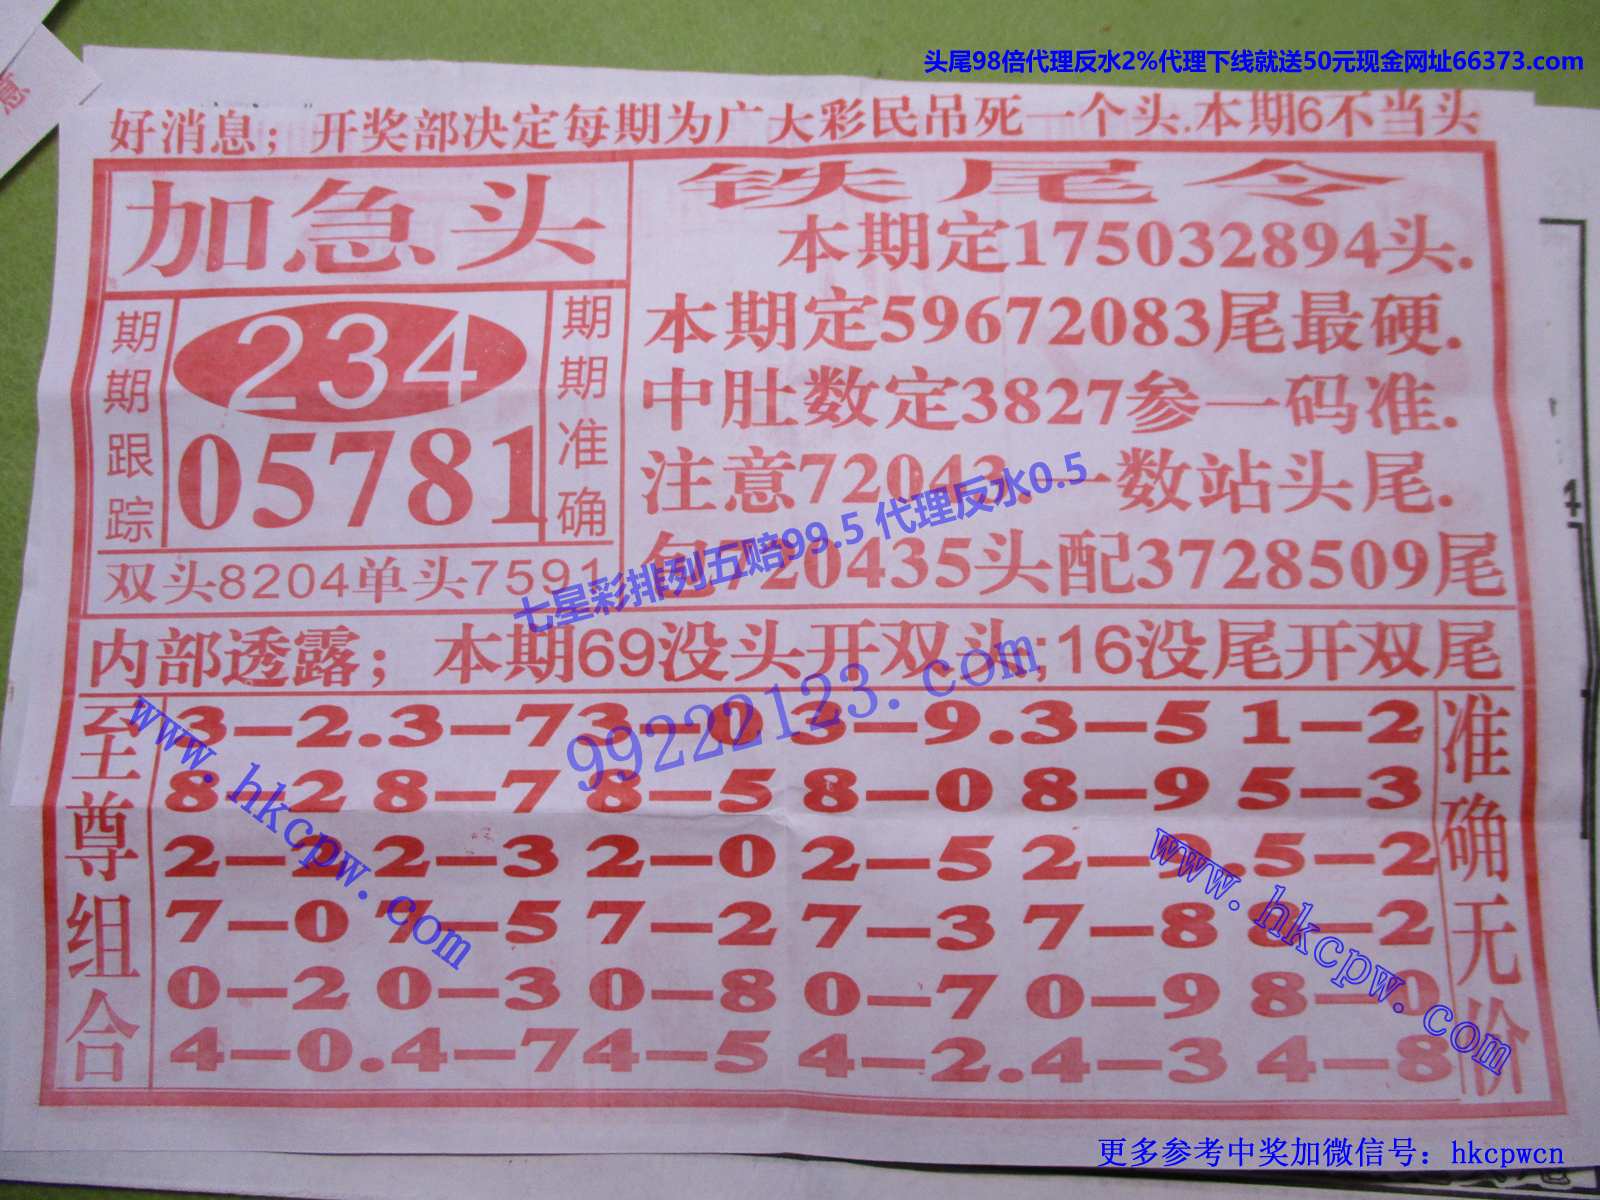 头尾98倍代理反水2%代理下线就送50元现金网址66373.com
好消息；开奖部决定每期为广大彩民吊死一个头.本期6不当头
加急头
期期跟踪
234
05781
期期准确
双头8204单头7591
铁尾令
本期定175032894头.
本期定59672083尾最硬.
中肚数定3827参一码准.
注意72043一数站头尾.
包720435头配3728509尾
七星彩排列五赔99.5 代理反水0.5
内部透露；本期69没头开双头;16没尾开双尾
99222123.com
至尊组合
3—2.3—73—0 3—9.3—5 1—2
8—2 8—7 8—5 8—0 8—9 5—3
2—2 2—3 2—0 2—5 2—9.5—2
7—0 7—5 7—2 7—3 7—8 8—2
0—2 0—3 0—8 0—7 0—9 8—0
4—0.4—74—5 4—2.4—3 4—8
准确无价
www.hkcpw.com
www.hkcpw.com
更多参考中奖加微信号：hkcpwcn